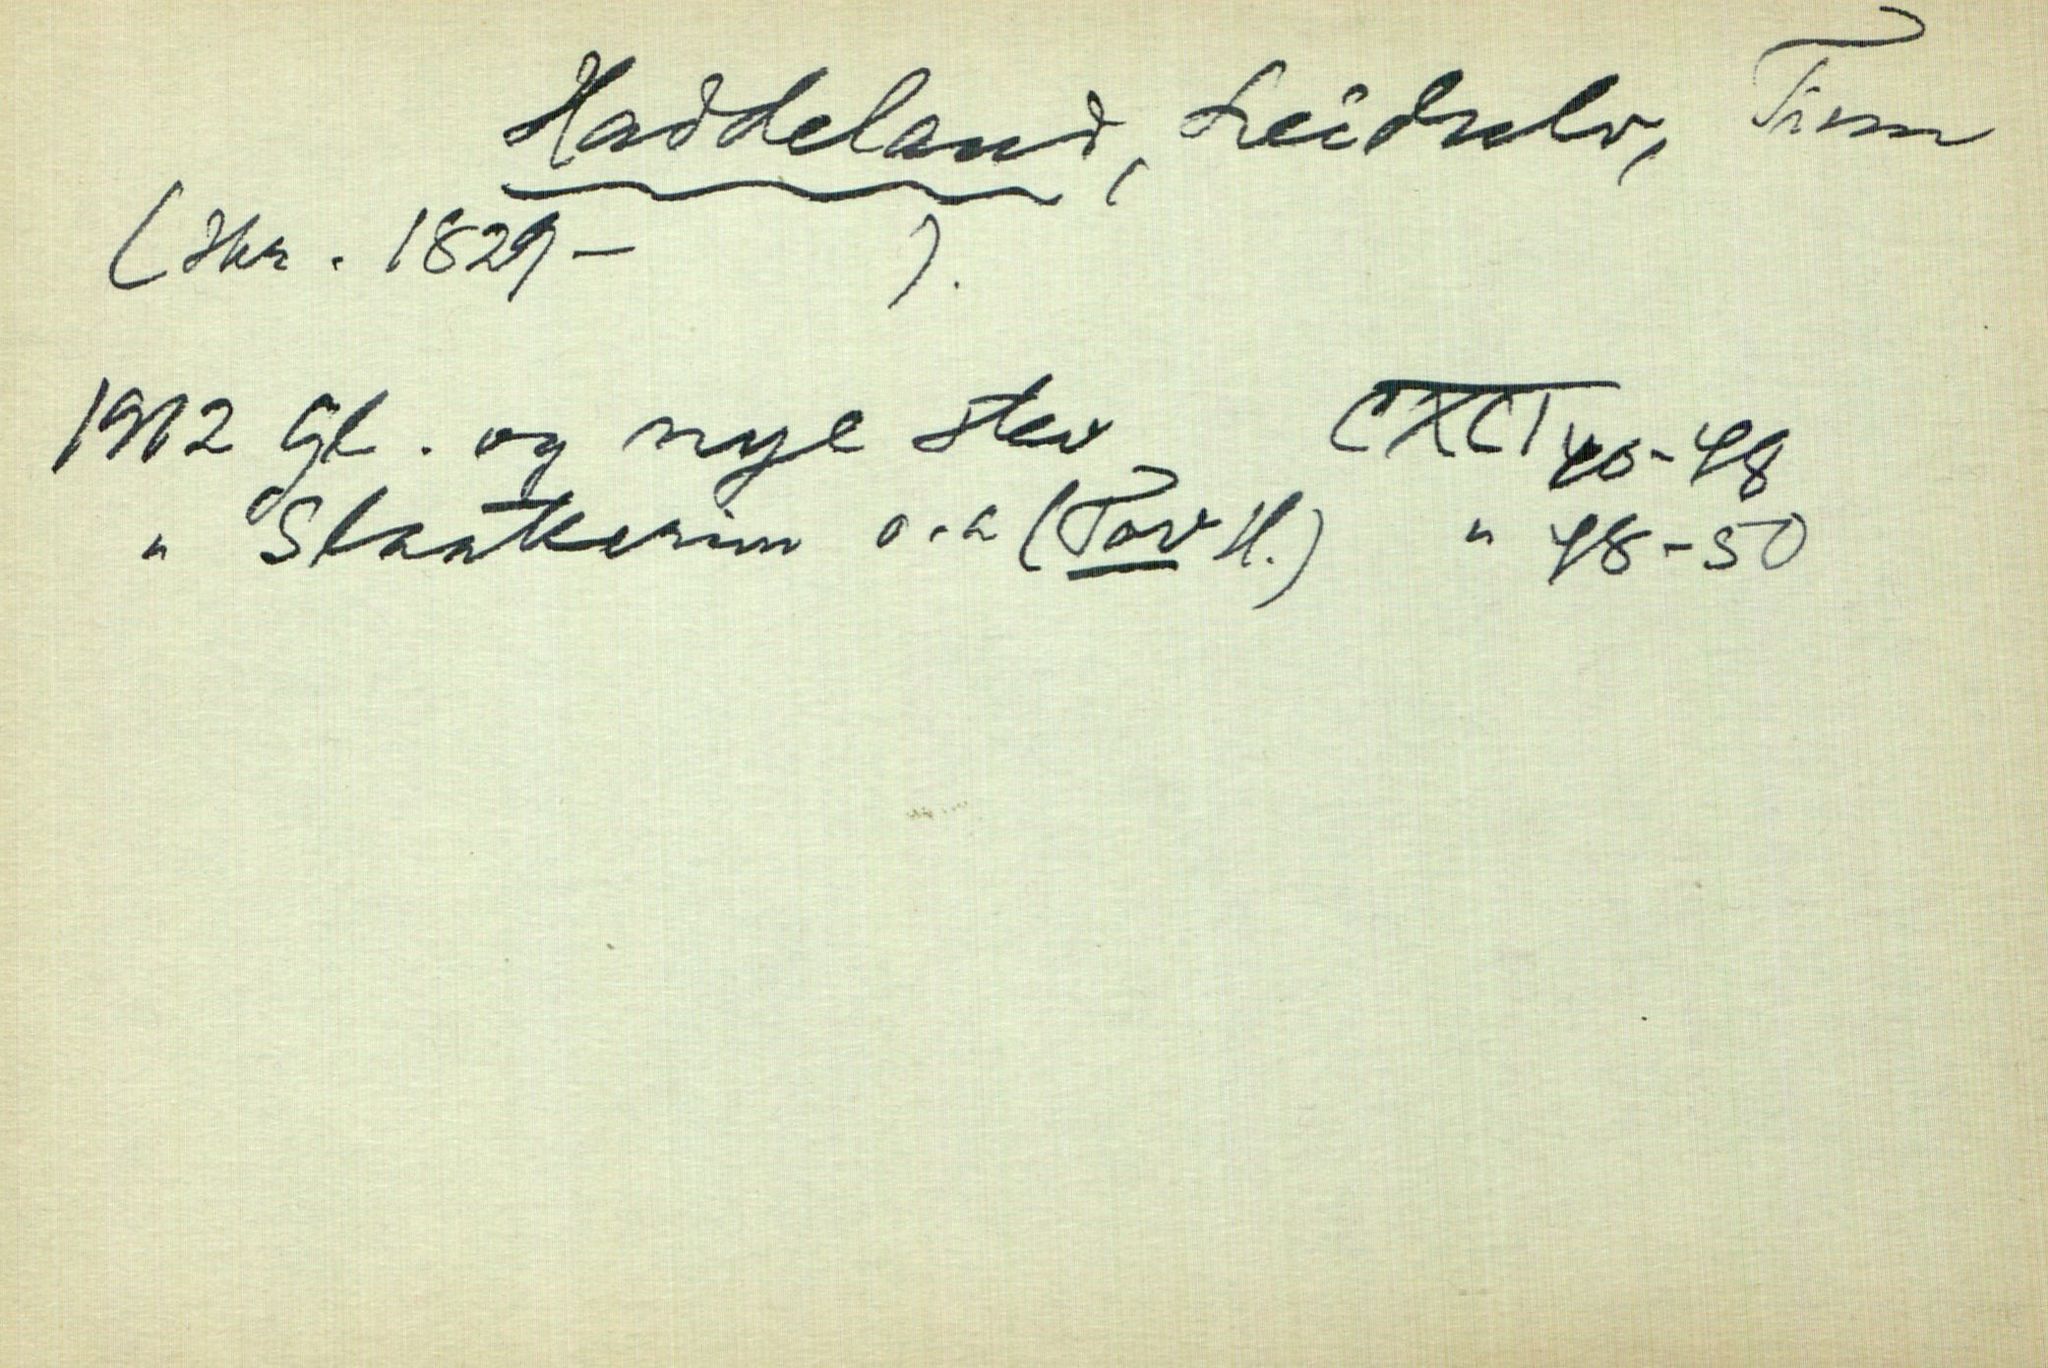 Haddeland, Leidulv, Tinn
( 1829 – ).
1912 Gl. og nye stev CXCI 46-48
" Slaatterim o.a (Tov H.) " 48-50